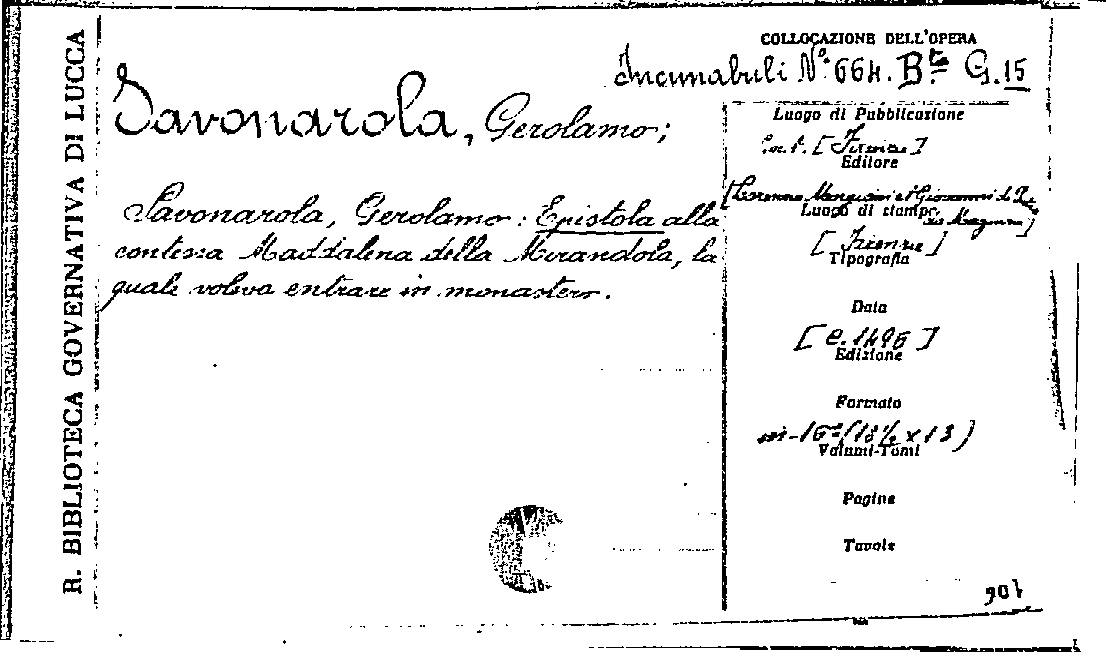 R. BIBLIOTECA GOVERNATIVA DI LUCCA
COLLOCAZIONE DELL'OPERA
Incunabuli N.° 664. B.ta G.15
Savonarola, Gerolamo;
Savonarola, Gerolamo: Epistola alla
contessa Maddalena della Mirandola, la
quale voleva entrare in monastero.
Luogo di Pubblicazione
[Firenze]
Editore
[Lorenzo Morgiani e Giovanni di
Luogo di stampa
[Firenze]
Tipografia
Data
[c. 1496]
Edizione
Formato
in-16° (18½ x 13)
Volumi-Tomi
Pagine
Tavole